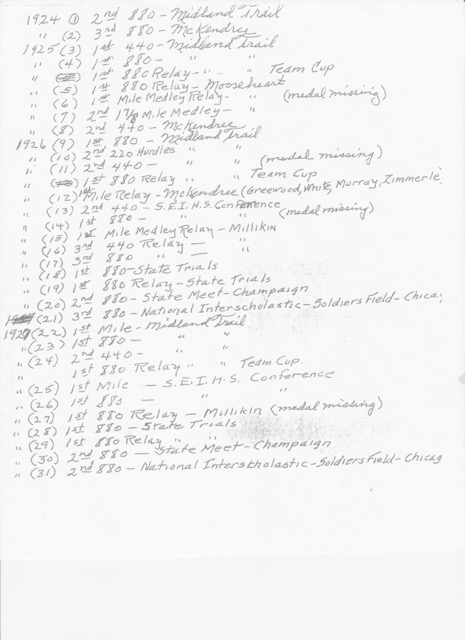 1924 ① 2nd 880 - Midland Trail
" (2) 3rd 880 - McKendree
1925 (3) 1st 440 - Midland Trail
" (4) 1st 880 - " "
" 1st 880 Relay - " " Team Cup
" (5) 1st 880 Relay - Mooseheart
" (6) 1st Mile Medley Relay - " (medal missing)
" (7) 2nd 1 7/8 Mile Medley - "
" (8) 2nd 440 - McKendree
1926 (9) 1st 880 - Midland Trail
" (10) 2nd 220 Hurdles " "
" (11) 2nd 440 - " " (medal missing)
" 1st 880 Relay " " Team Cup
" (12) 1st Mile Relay - McKendree (Greewood, White, Murray, Zimmerle
" (13) 2nd 440 - S.E.I.H.S. Conference
" (14) 1st 880 - " " (medal missing)
" (15) 1st Mile Medley Relay - Millikin
" (16) 3rd 440 Relay - "
" (17) 3rd 880 " - "
" (18) 1st 880 - State Trials
" (19) 1st 880 Relay - State Trials
" (20) 2nd 880 - State Meet - Champaign
" (21) 3rd 880 - National Interscholastic - Soldiers Field - Chica
1927 (22) 1st Mile - Midland Trail
" (23) 1st 880 - " "
" (24) 2nd 440 - " "
" 1st 880 Relay " " Team Cup
" (25) 1st Mile - S.E.I.H.S. Conference
" (26) 1st 880 - " "
" (27) 1st 880 Relay - Millikin (medal missing)
" (28) 1st 880 - State Trials
" (29) 1st 880 Relay " "
" (30) 2nd 880 - State Meet - Champaign
" (31) 2nd 880 - National Interskholastic - Soldiers Field - Chicag